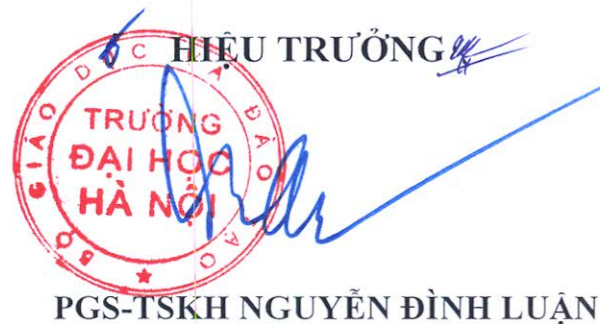 HIỆU TRƯỞNG
BỘ GIÁO DỤC VÀ ĐÀO TẠO
TRƯỜNG
ĐẠI HỌC
HÀ NỘI
PGS-TSKH NGUYỄN ĐÌNH LUẬN